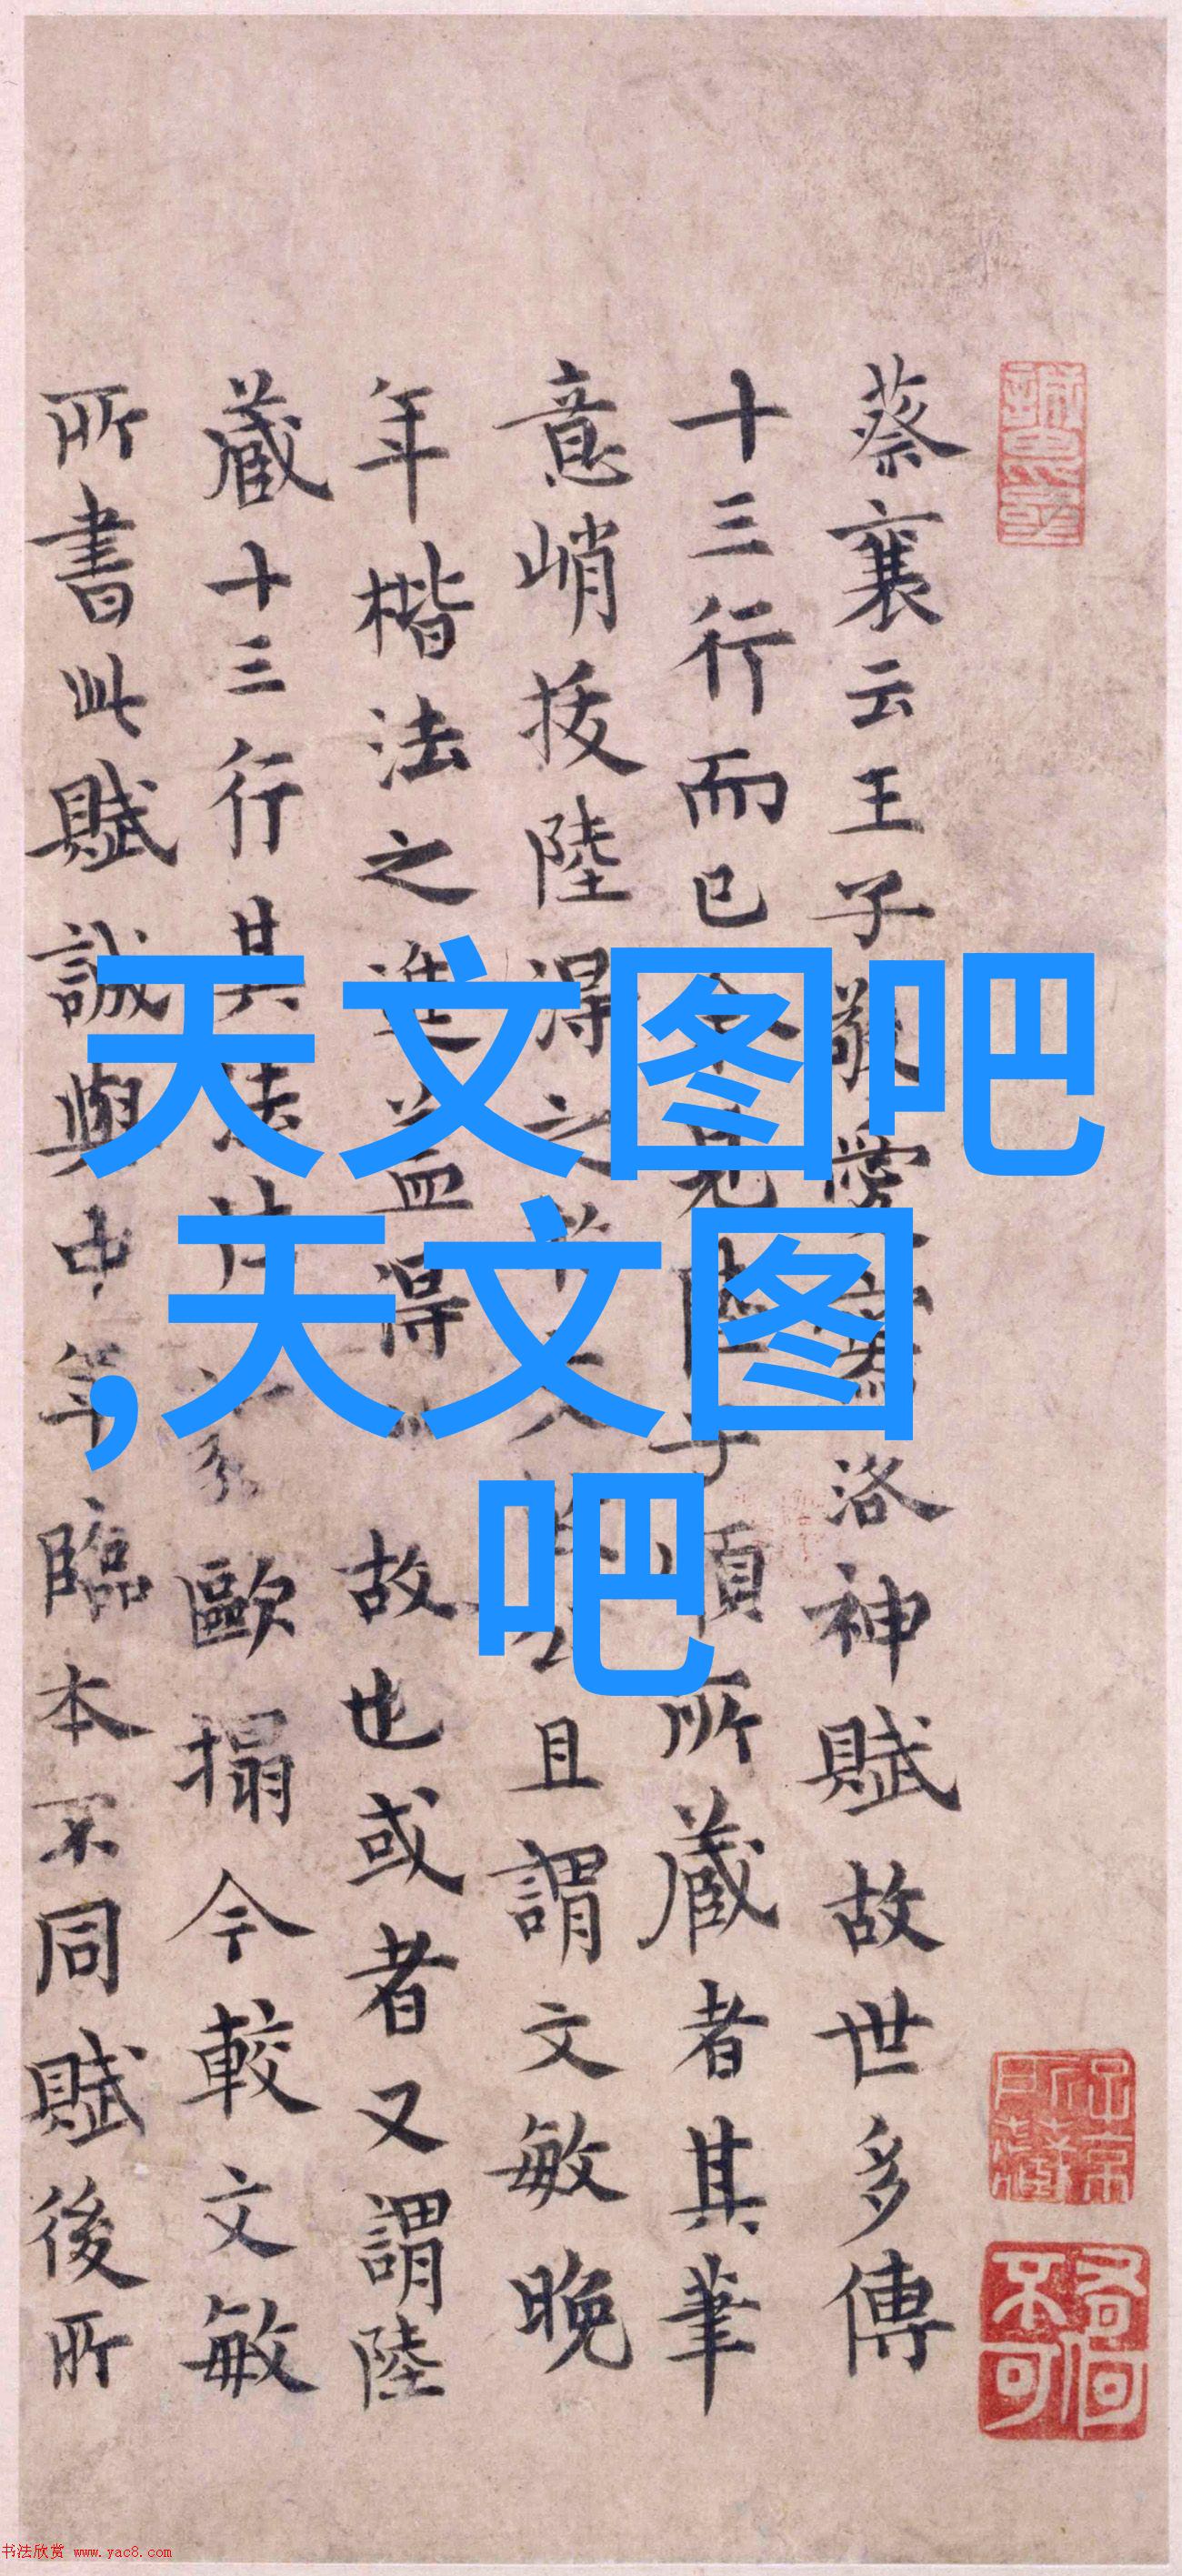 蔡襄云王子敬愛寫洛神賦故世多傳
十三行而已今見陸子順所藏者其筆
意峭拔陸得之 且謂文敏晚
年楷法之進益得 故也或者又謂陸
藏十三行其法 歐搨今較文敏
所書此賦誠與中年臨本不同賦後所
天文图吧
,天文图
吧
不可
书法欣赏 www.yac8.com